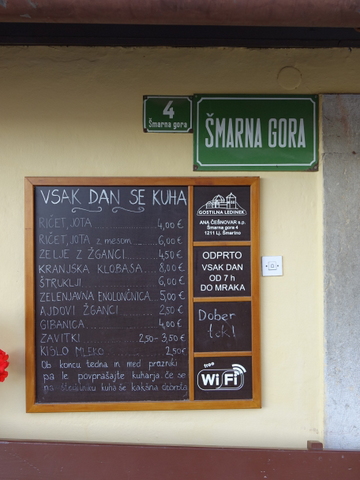 4
Šmarna gora
ŠMARNA GORA
VSAK DAN SE KUHA
RIČET, JOTA 4,00 €
RIČET, JOTA z mesom 6,00 €
ZELJE Z ŽGANCI 4,50 €
KRANJSKA KLOBASA 8,00 €
ŠTRUKLJI 6,00 €
ZELENJAVNA ENOLONČNICA 5,00 €
AJDOVI ŽGANCI 2,50 €
GIBANICA 4,00 €
ZAVITKI 2,50-3,50 €
KISLO MLEKO 2,50 €
Ob koncu tedna in med prazniki
pa le povprašajte kuharja, če se
na štedilniku kuha še kakšna dobrota
GOSTILNA LEDINEK
ANA ČEŠNOVAR s.p.
Šmarna gora 4
1211 Lj. Šmartno
ODPRTO
VSAK DAN
OD 7 h
DO MRAKA
Dober
tek!
free
WiFi